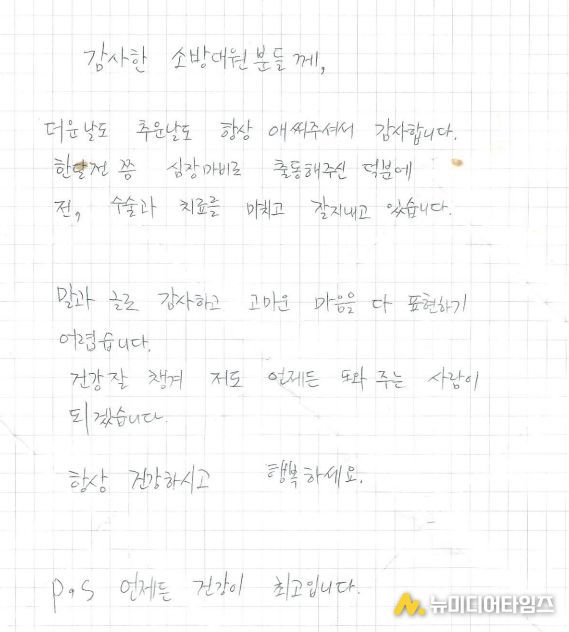 감사한 소방대원분들께,
더운날도 추운날도 항상 애써주셔서 감사합니다.
한달전 쯤 심장마비로 출동해주신 덕분에
전, 수술과 치료를 마치고 잘지내고 있습니다.
말과 글로 감사하고 고마운 마음을 다 표현하기
어렵습니다.
건강 잘 챙겨 저도 언제든 도와 주는 사람이
되겠습니다.
항상 건강하시고 행복하세요.
p.s 언제든 건강이 최고입니다.
뉴미디어타임즈